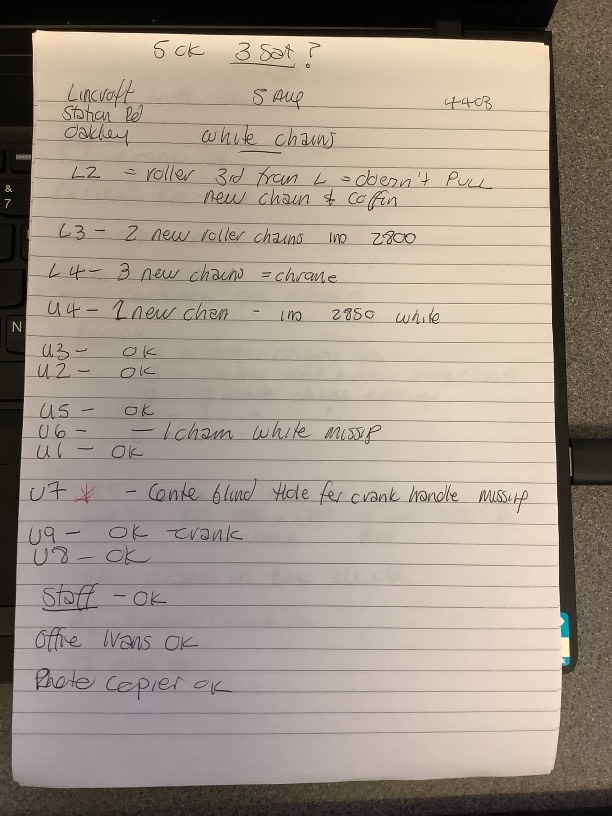 5 ok 3 Sat?
Lincroft 5 Aug 4403
Station Rd
Oakley white chains
L2 = roller 3rd from L = doesn't PULL
new chain & coffin
L3 - 2 new roller chains 2800
L4 - 3 new chains = chrome
U4 - 1 new chan - 2850 white
U3 - OK
U2 - OK
U5 - OK
U6 - - 1 chain white missing
U1 - OK
U7 * - Cente blind Hole for crank handle missing
U9 - OK - crank
U8 - OK
Staff - OK
Office Ivans OK
Photo copier OK
& 7
N